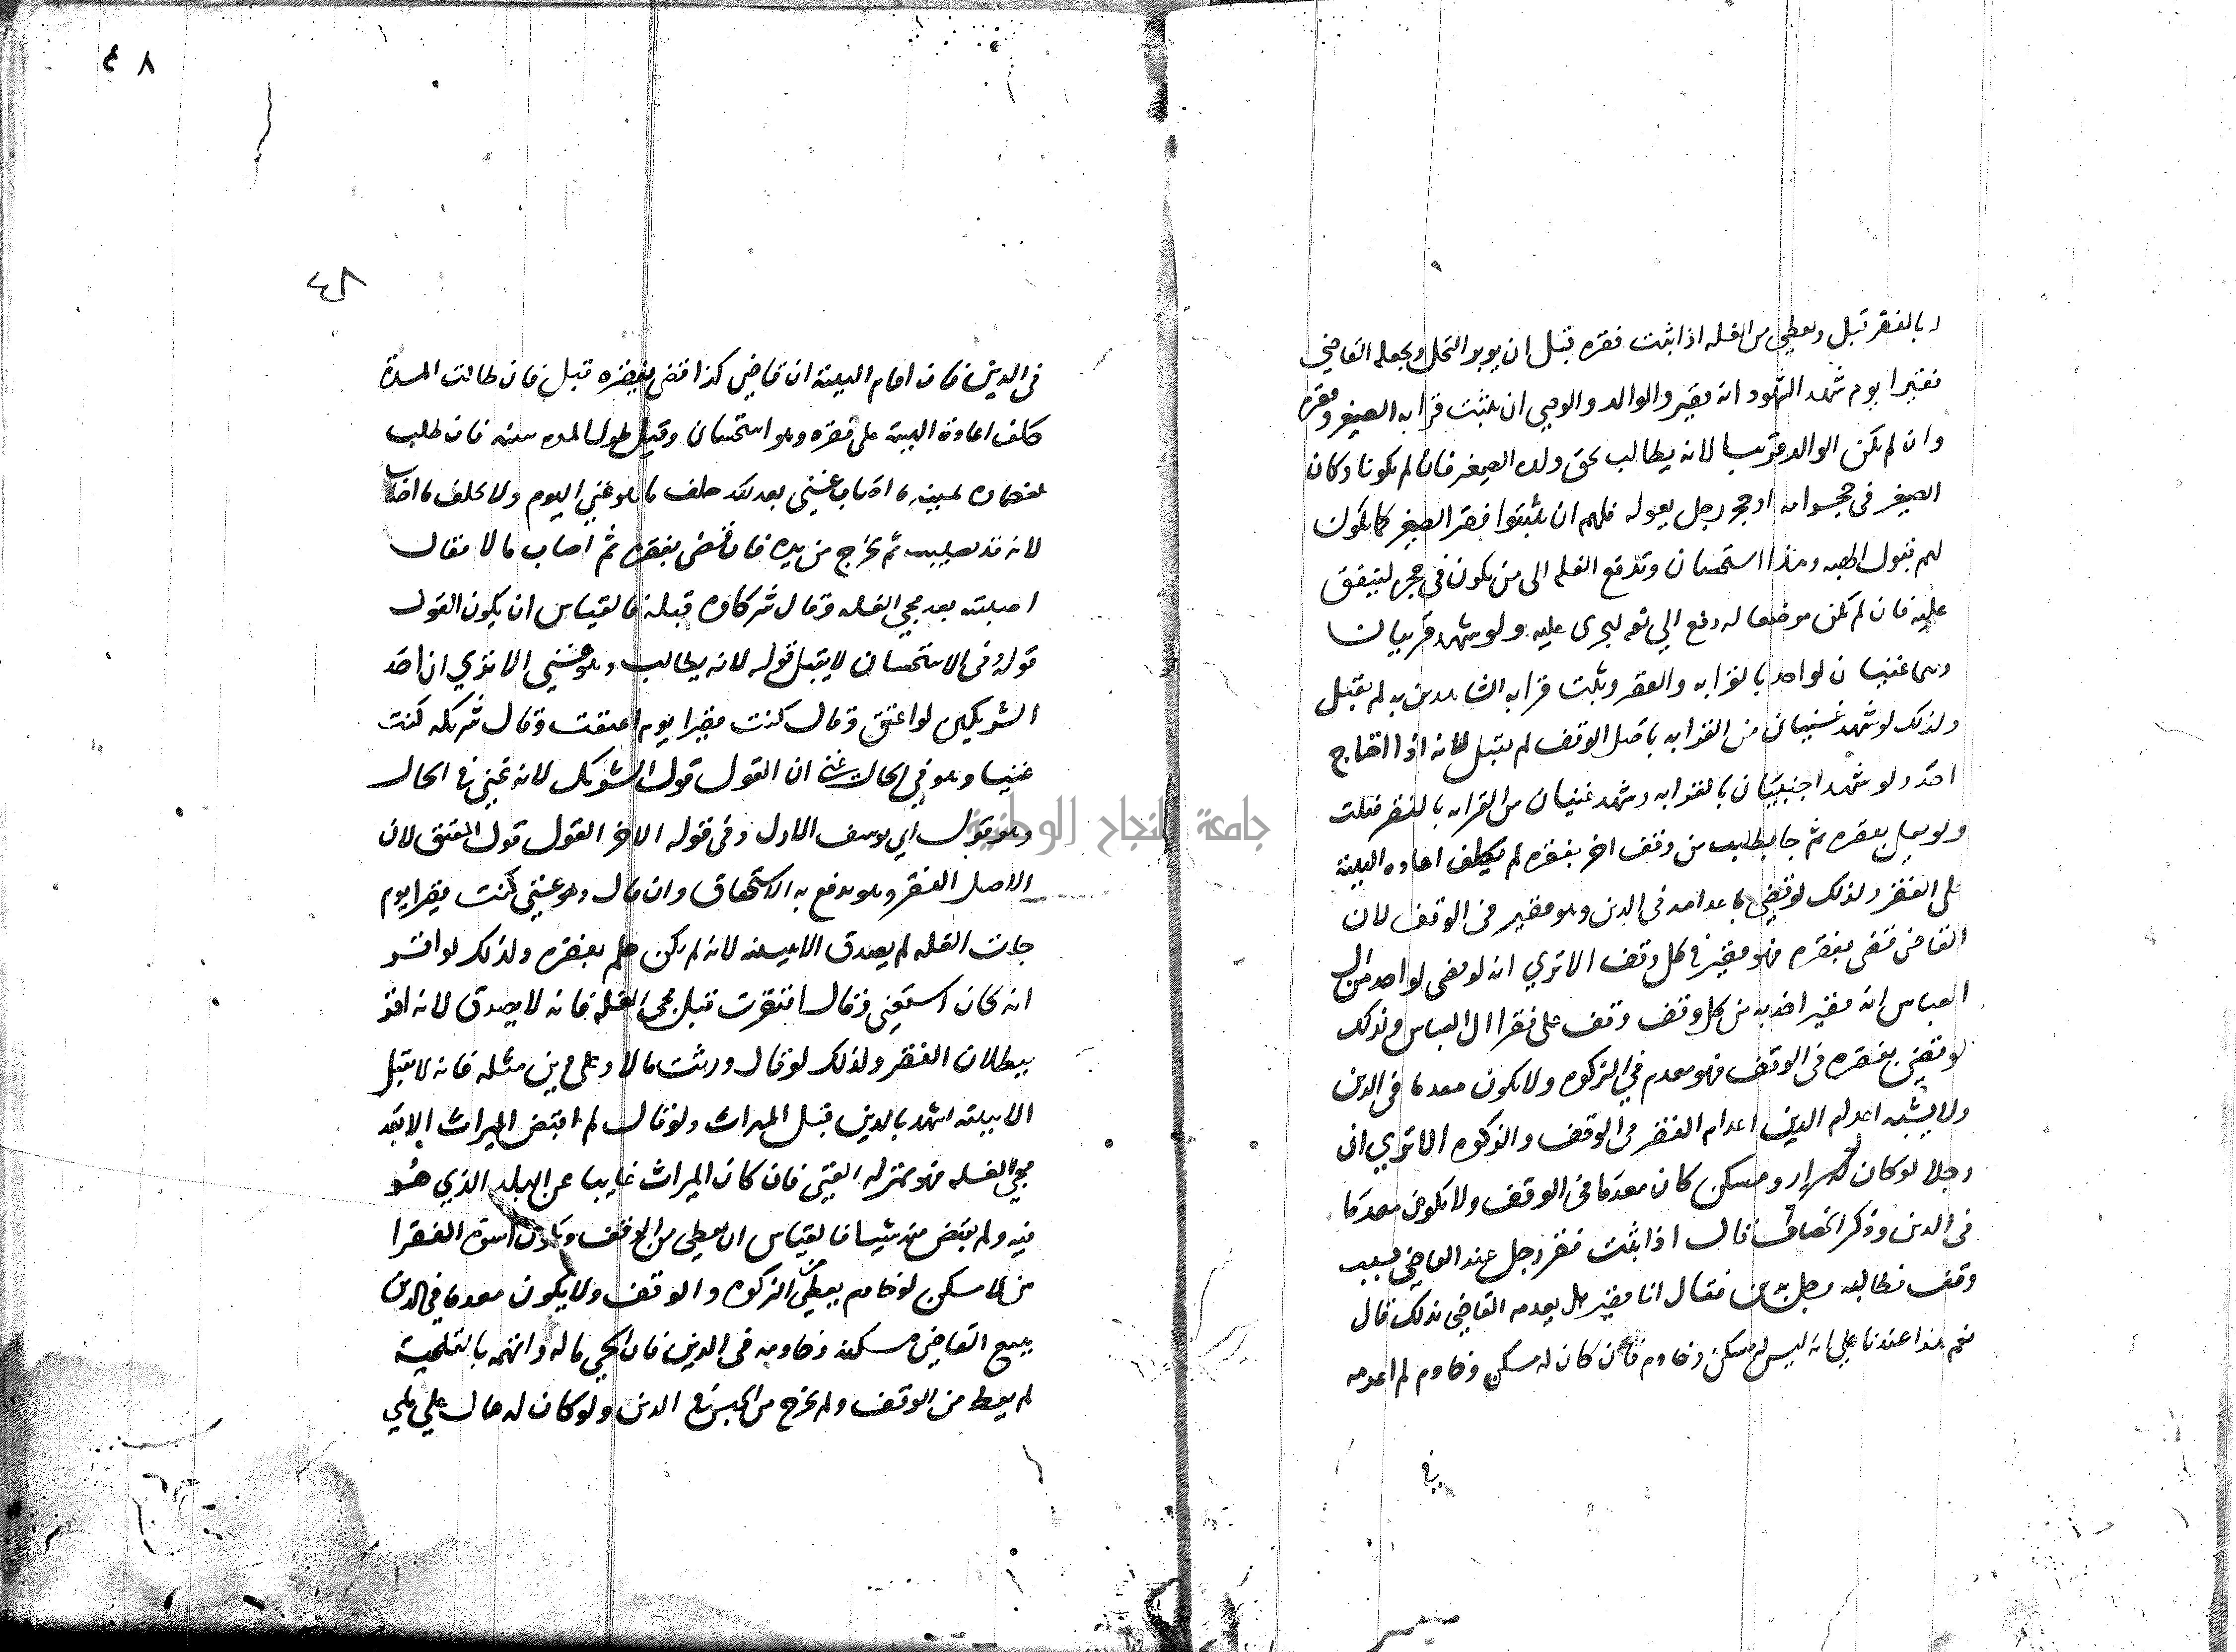 له بالفقر قبل ويعطي من الغله اذا ثبت فقره قبل ان يوبر النخل ويجعله القاضي
فقيرا يوم شهد الشهود انه فقير والوالد والوصي ان يثبت قرابه الصغير وفقره
وان لم يكن الوالد قريبا لانه يطالب بحق ولده الصغير فان لم يكونا وكان
الصغير في حجر امه او حجر رجل يعوله فلهم ان يثبتوا فقر الصغير كما يكون
لهم قبول الهبه وهذا استحسان وتدفع الغله الى من يكون في حجره لينفق
عليه فان لم يكن موضعا له دفع الي ثقه ليجرى عليه ولو شهد قريبان
وهما غنيان لواحد بالقرابه والفقر وثبت قرابه الشاهدين به لم يقبل
ولذلك لو شهد غنيان من القرابه باصل الوقف لم يقبل لانه اذا احتاج
اخذ ولو شهد اجنبيان بالقرابه وشهد غنيان من القرابه بالفقر قبلت
ولو بفقره ثم جا يطلب من وقف اخر بفقره لم يكلف اعاده البينة
على الفقر ولذلك لو قضي باعدامه في الدين وهو فقير في الوقف لان
القاضي قضى بفقره فهو فقير في كل وقف الا تري انه لو قضى لواحد من ال
العباس انه فقير اخذ به من كل وقف وقف على فقرا ال العباس وكذلك
لو قضي بفقره في الوقف فهو معدم في الزكوه ولا يكون معدما في الدين
ولا يشبه اعدام الدين اعدام الفقر في الوقف والزكوه الا تري ان
رجلا لو كان له دار ومسكن كان معدما في الوقف ولا يكون معدما
في الدين وذكر الخصاف قال اذا ثبت فقر رجل عند القاضي بسبب
وقف فطالبه رجل بدين فقال انا فقير هل يعدمه القاضي بذلك قال
نعم هذا عندنا علي انه ليس له مسكن وخادم فان كان له مسكن وخادم لم اعدمه
في
٤٨
٤٨
في الدين فان اقام البينة ان قاضي كذا قضى بفقره قبل فان طالت المدة
كلف اعادة البينة على فقره وهو استحسان وقيل طول المده سنه فان طلب
بعد ذلك حلف ما هو غني اليوم ولا يحلف ما اصاب
لانه قد يصيب ثم يخرج من يده فان قضى بفقره ثم اصاب مالا فقال
اصبته بعد مجي الغله وقال شركاوه قبله فالقياس ان يكون القول
قوله وفي الاستحسان لا يقبل قوله لانه يطالب وهو غني الا تري ان احد
الشريكين لو اعتق وقال كنت فقيرا يوم اعتقت وقال شريكه كنت
غنيا وهو في الحال غني ان القول قول الشريك لانه غني في الحال
وهو قول ابي يوسف الاول وفي قوله الاخر القول قول المعتق لان
الاصل الفقر وهو يدفع به الاستحقاق وان قال وهو غني كنت فقيرا يوم
جات الغله لم يصدق الا ببينه لانه لم يكن حكم بفقره ولذلك لو اقر
انه كان استغنى وقال افتقرت قبل مجي الغله فانه لا يصدق لانه اقر
ببطلان الفقر ولذلك لو قال ورثت مالا وعلي دين مثله فانه لا يقبل
الا ببينه تشهد بالدين قبل الميراث ولو قال لم اقبض الميراث الا بعد
مجي الغله فهو بمنزله الغني فان كان الميراث غايبا عن البلد الذي هو
فيه ولم يقبض منه شيا فالقياس ان يعطي من الوقف ويكون اسوة الفقرا
من له مسكن او خادم يعطي من الزكوه والوقف ولا يكون معدما في الدين
يبيع القاضي مسكنه وخادمه في الدين فان الجي ماله واتهم بالتلجية
لم يعط من الوقف ولم يخرج من الحبس في الدين ولو كان له مال علي ملي
جامعة النجاح الوطنية